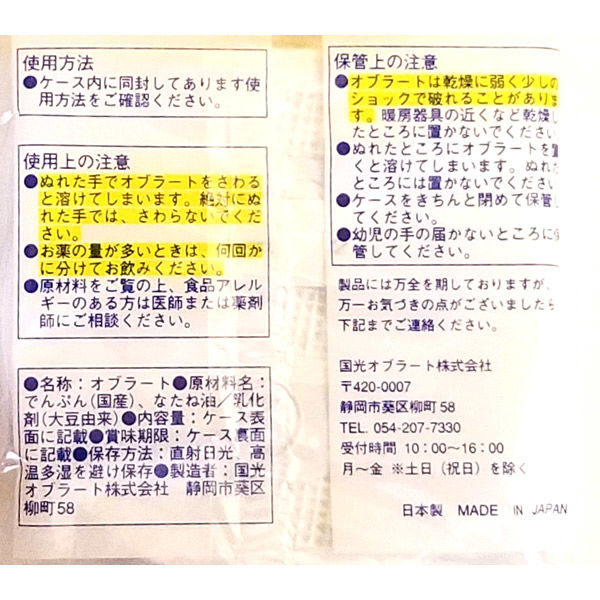 使用方法
●ケース内に同封してあります使
用方法をご確認ください。
使用上の注意
●ぬれた手でオブラートをさわる
と溶けてしまいます。絶対にぬ
れた手では、さわらないでくだ
さい。
●お薬の量が多いときは、何回か
に分けてお飲みください。
●原材料をご覧の上、食品アレル
ギーのある方は医師または薬剤
師にご相談ください。
●名称：オブラート●原材料名：
でんぷん(国産)、なたね油／乳化
剤(大豆由来)●内容量：ケース表
面に記載●賞味期限：ケース裏面
に記載●保存方法：直射日光、高
温多湿を避け保存●製造者：国光
オブラート株式会社　静岡市葵区
柳町58
保管上の注意
●オブラートは乾燥に弱く少しの
ショックで破れることがありま
す。暖房器具の近くなど乾燥し
たところに置かないでください
●ぬれたところにオブラートを置
くと溶けてしまいます。ぬれた
ところには置かないでください
●ケースをきちんと閉めて保管し
てください。
●幼児の手の届かないところに保
管してください。
製品には万全を期しておりますが、
万一お気づきの点がございましたら
下記までご連絡ください。
国光オブラート株式会社
〒420-0007
静岡市葵区柳町58
TEL. 054-207-7330
受付時間 10：00〜16：00
月〜金 ※土日（祝日）を除く
日本製　MADE　IN JAPAN